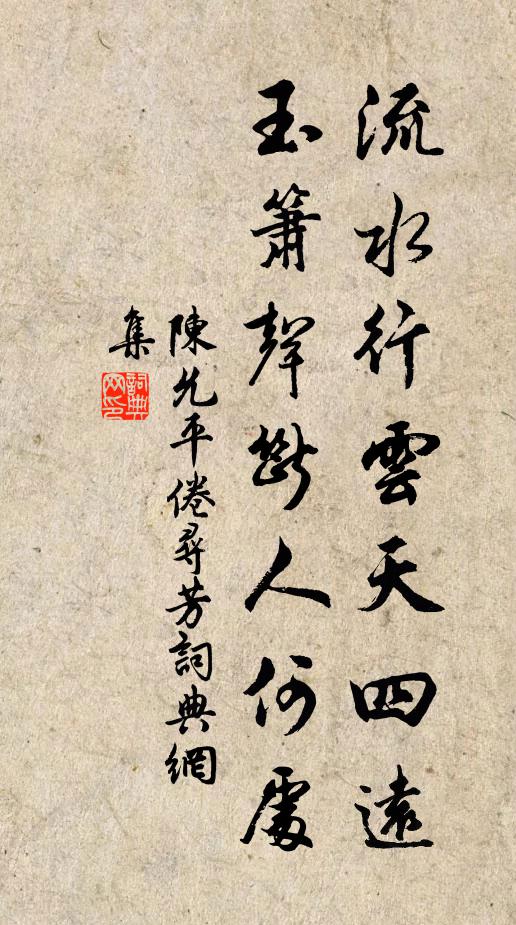 流水行雲天四遠
玉簫聲斷人何處
陳允平倦尋芳詞典網
集
詞典網印